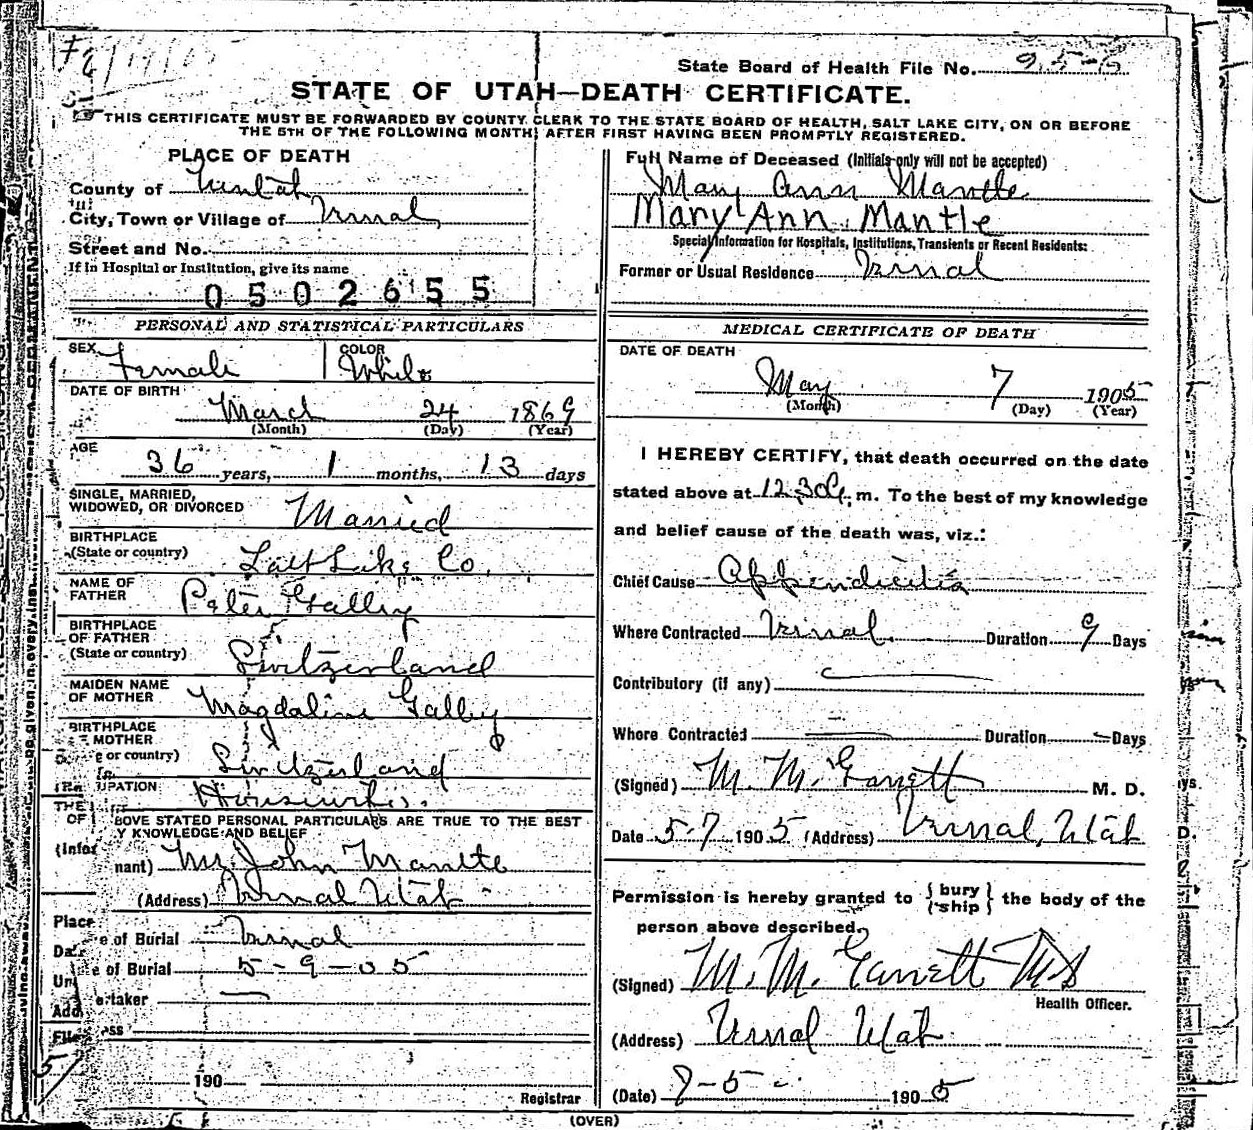 State Board of Health File No. 95-6
STATE OF UTAH—DEATH CERTIFICATE.
THIS CERTIFICATE MUST BE FORWARDED BY COUNTY CLERK TO THE STATE BOARD OF HEALTH, SALT LAKE CITY, ON OR BEFORE
THE 5TH OF THE FOLLOWING MONTH, AFTER FIRST HAVING BEEN PROMPTLY REGISTERED.
PLACE OF DEATH
County of Uintah
City, Town or Village of Vernal
Street and No.
If in Hospital or Institution, give its name
0502655
Full Name of Deceased (Initials only will not be accepted)
Mary Ann Mantle
Mary Ann Mantle
Special Information for Hospitals, Institutions, Transients or Recent Residents:
Former or Usual Residence Vernal
PERSONAL AND STATISTICAL PARTICULARS
SEX Female COLOR White
DATE OF BIRTH
March 24 1869
(Month) (Day) (Year)
AGE
36 years, 1 months, 13 days
SINGLE, MARRIED,
WIDOWED, OR DIVORCED Married
BIRTHPLACE
(State or country) Salt Lake Co.
NAME OF
FATHER Peter Gally
BIRTHPLACE
OF FATHER
(State or country) Switzerland
MAIDEN NAME
OF MOTHER Magdaline Gally
BIRTHPLACE
MOTHER
e or country) Switzerland
UPATION Housewife.
THE
OF
BOVE STATED PERSONAL PARTICULARS ARE TRUE TO THE BEST
Y KNOWLEDGE AND BELIEF
(Infor
nant) Mr. John Mantle
(Address) Vernal Utah
Place
e of Burial Vernal
Da
e of Burial 5-9-05
Un
ertaker
Add
ess
File
190
Registrar
MEDICAL CERTIFICATE OF DEATH
DATE OF DEATH
May 7 1905
(Month) (Day) (Year)
I HEREBY CERTIFY, that death occurred on the date
stated above at 12.30 m. To the best of my knowledge
and belief cause of the death was, viz.:
Chief Cause Appendicitis
Where Contracted Vernal Duration 9 Days
Contributory (if any)
Where Contracted Duration Days
(Signed) M. M. Garrett M. D.
Date 5-7 1905 (Address) Vernal, Utah
Permission is hereby granted to {bury
ship} the body of the
person above described.
(Signed) M. M. Garrett MD
Health Officer.
(Address) Vernal Utah
(Date) 1905
(OVER)